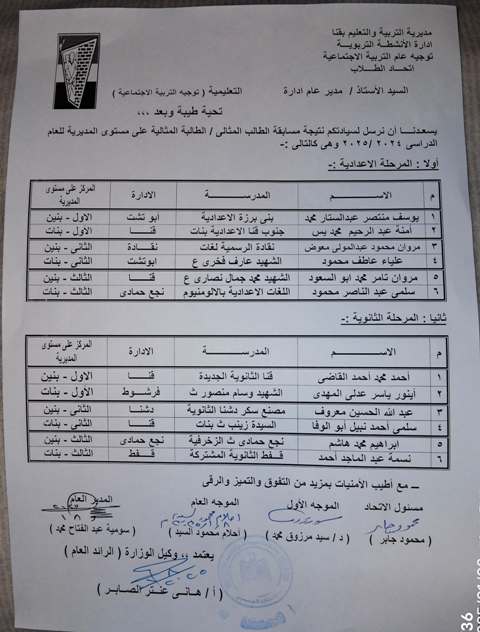 مديرية التربية والتعليم بقنا
ادارة الأنشطة التربوية
توجيه عام التربية الاجتماعية
اتحاد الطلاب
السيد الأستاذ / مدير عام ادارة التعليمية ( توجيه التربية الاجتماعية )
تحية طيبة وبعد ,,,
يسعدنا أن نرسل لسيادتكم نتيجة مسابقة الطالب المثالى / الطالبة المثالية على مستوى المديرية للعام
الدراسى ٢٠٢٤ /٢٠٢٥ وهى كالتالى :-
أولا : المرحلة الاعدادية :-
م الاســـم المدرســـة الادارة المركز على مستوى المديرية
١ يوسف منتصر عبدالستار محمد بنى برزة الاعدادية ابو تشت الاول - بنين
٢ امنة عبد الرحيم محمد يس جنوب قنا الاعدادية بنات قنـــا الاول - بنات
٣ مروان محمود عبدالمولى معوض نقادة الرسمية لغات نقـــادة الثانى - بنين
٤ علياء عاطف محمود الشهيد عارف فخرى ع ابوتشت الثانى - بنات
٥ مروان تامر محمد ابو السعود الشهيد محمد جمال نصارى ع قنـــا الثالث - بنين
٦ سلمى عبد الناصر محمود اللغات الاعدادية بالالومنيوم نجع حمادى الثالث - بنات
ثانيا : المرحلة الثانوية :-
م الاســـم المدرســـة الادارة المركز على مستوى المديرية
١ أحمد محمد أحمد القاضى قنا الثانوية الجديدة قنـــا الاول - بنين
٢ أينور ياسر عدلى المهدى الشهيد وسام منصور ث فرشوط الأول - بنات
٣ عبد الله الحسين معروف مصنع سكر دشنا الثانوية دشنا الثانى - بنين
٤ سلمى أحمد نبيل ابو الوفا السيدة زينب ث بنات قنـــا الثانى - بنات
٥ ابراهيم محمد هاشم نجع حمادى ث الزخرفية نجع حمادى الثالث - بنين
٦ نسمة عبد الماجد أحمد قفط الثانوية المشتركة قفـــط الثالث - بنات
ـــ مع أطيب الأمنيات بمزيد من التفوق والتميز والرقى
مسئول الاتحاد الموجه الأول الموجه العام المدير العام
( محمود جابر ) ( د / سيد مرزوق محمد ) ( أحلام محمود السيد ) ( سومية عبد الفتاح محمد )
يعتمد ,, وكيل الوزارة ( الرائد العام )
( أ / هانى عنتر الصابر )
36